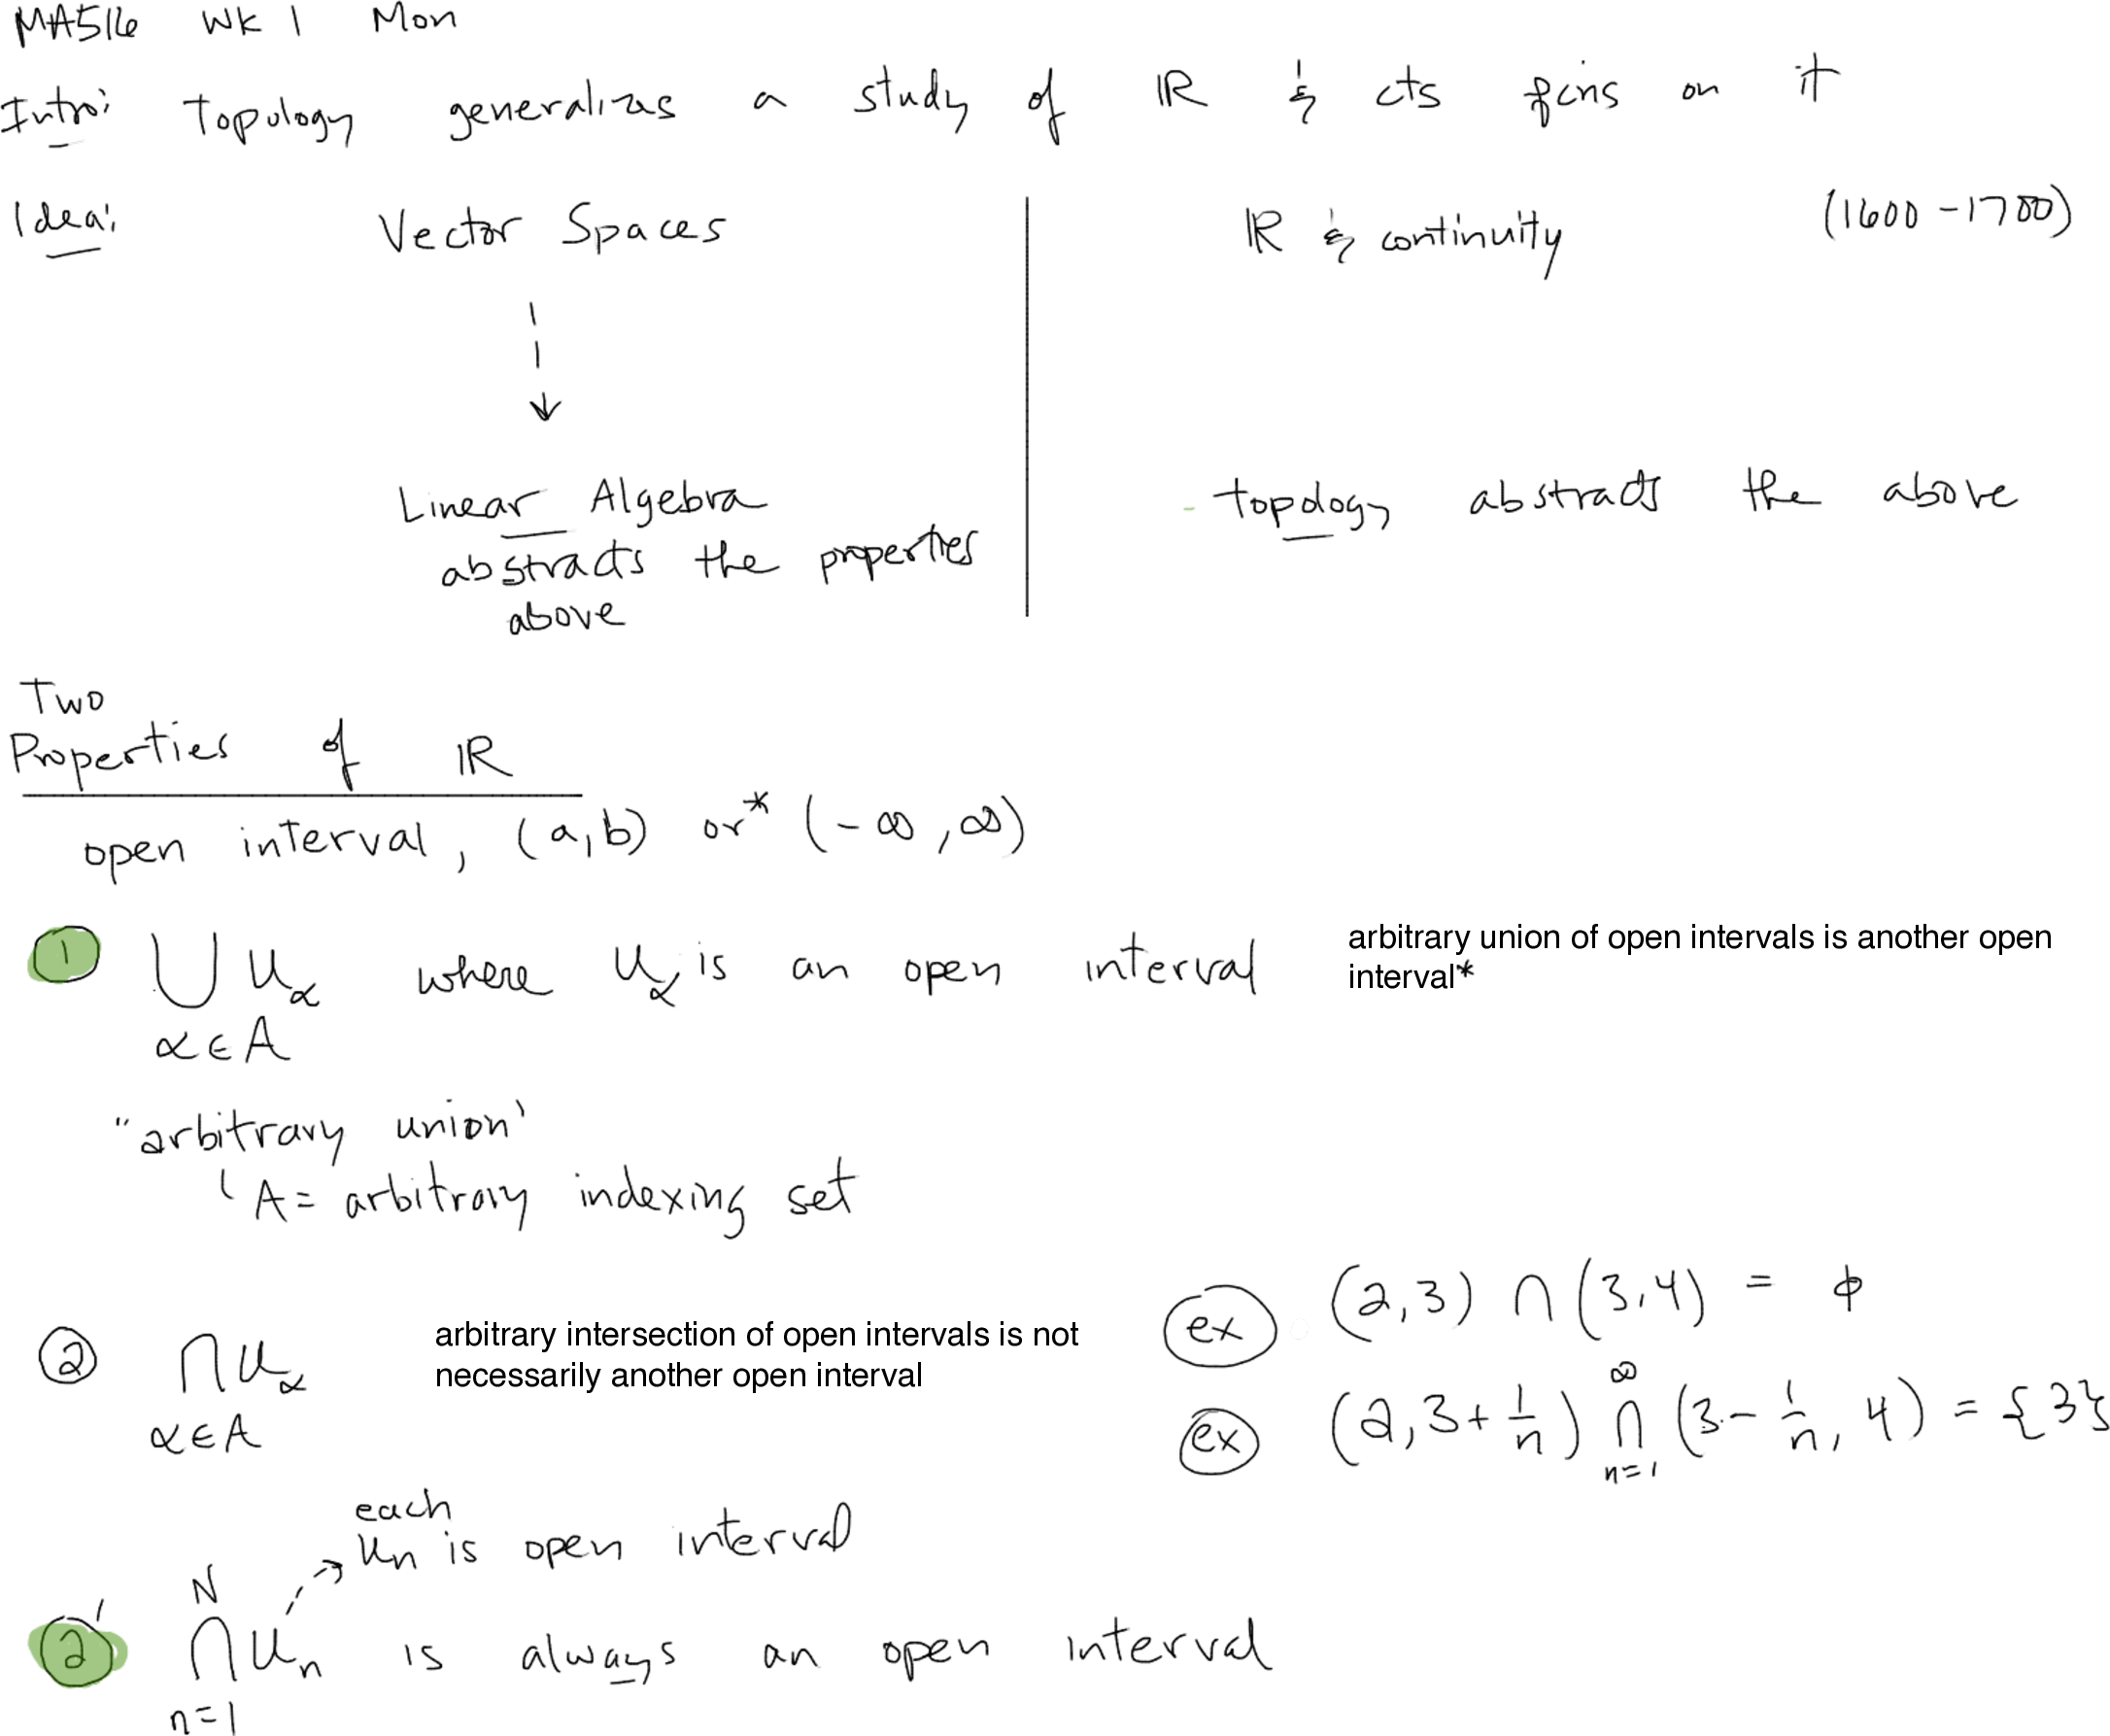 MA516 Wk 1 Mon
Intro: Topology generalizes a study of ℝ & cts fcns on it
Idea: Vector Spaces
ℝ & continuity (1600-1700)
Linear Algebra
abstracts the properties
above
- topology abstracts the above
Two
Properties of ℝ
open interval, (a,b) or* (-∞,∞)
① ⋃ U_α where U_α is an open interval
α∈A
arbitrary union of open intervals is another open
interval*
"arbitrary union'
A = arbitrary indexing set
② ⋂ U_α
α∈A
arbitrary intersection of open intervals is not
necessarily another open interval
ex (2,3) ∩ (3,4) = ϕ
∞
ex (2,3+1/n) ∩ (3-1/n, 4) = {3}
n=1
each
U_n is open interval
N
②' ⋂ U_n is always an open interval
n=1